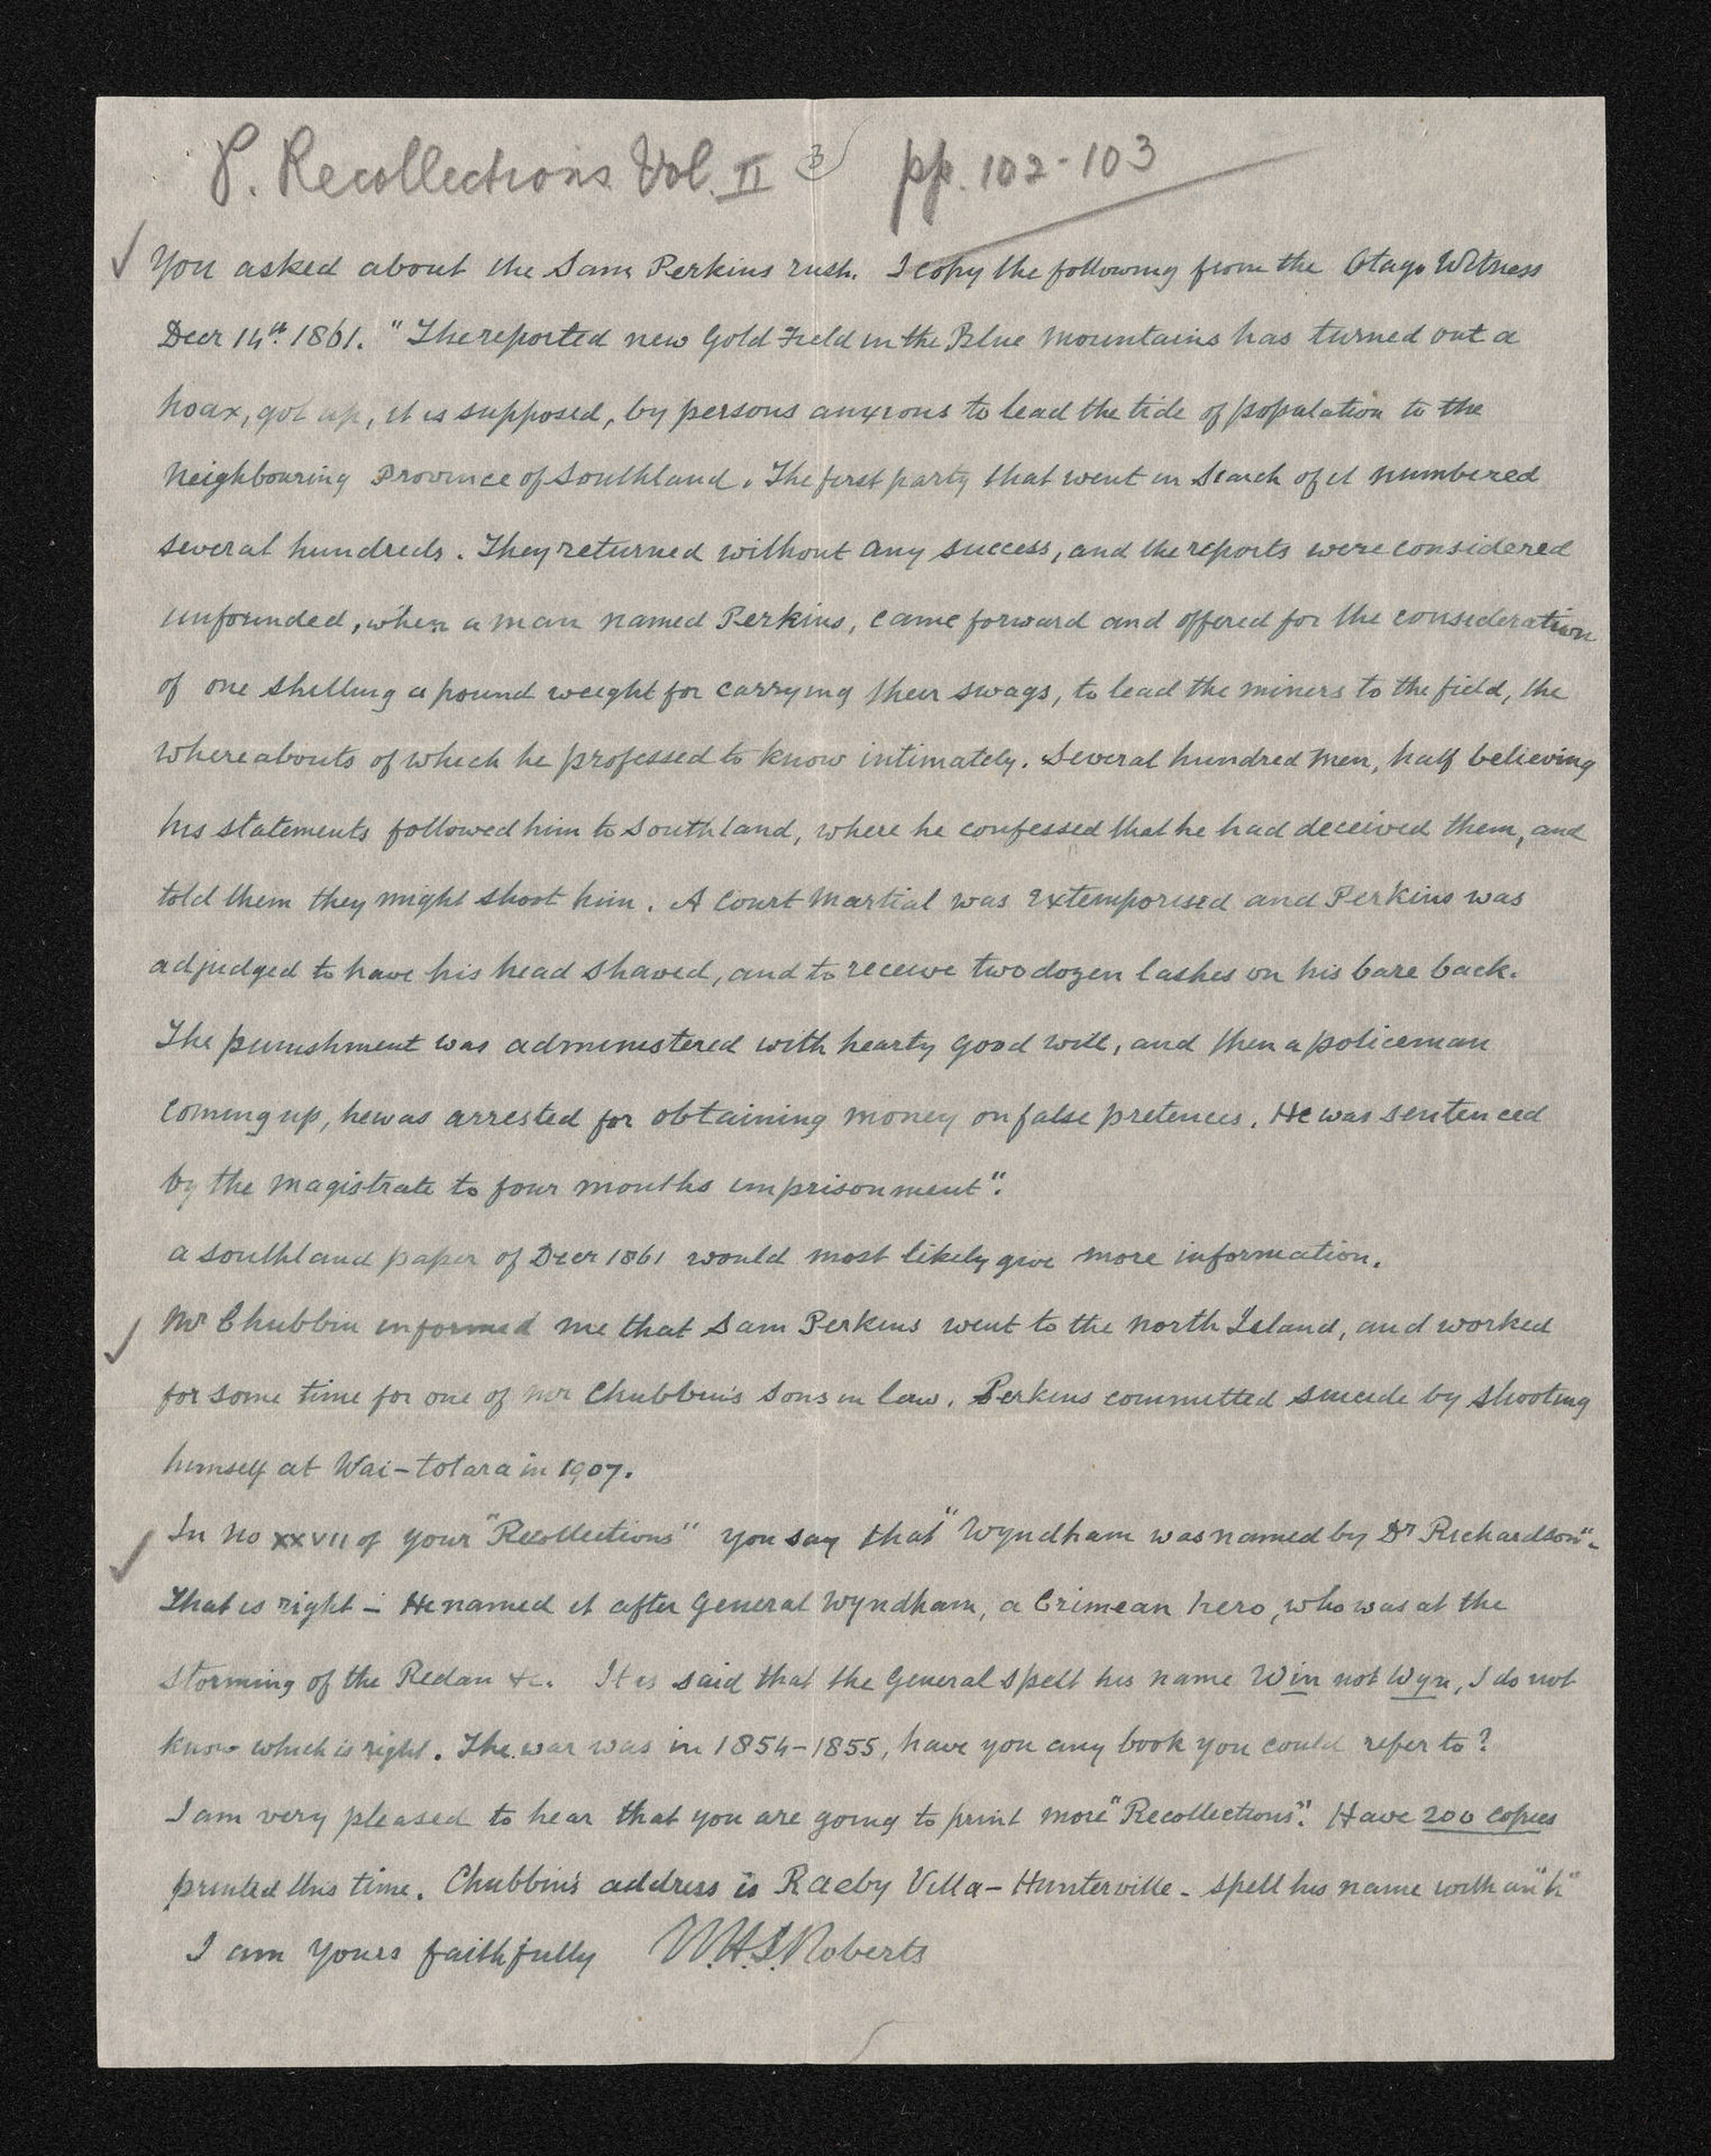 P. Recollections Vol. II 3 pp. 102-103
You asked about the Sam Perkins rush. I copy the following from the Otago Witness
Decr 14th 1861. "The reported new Gold Field in the Blue Mountains has turned out a
hoax, got up, it is supposed, by persons anxious to lead the tide of population to the
Neighbouring Province of Southland. The first party that went in search of it numbered
several hundreds. They returned without any success, and the reports were considered
unfounded, when a man named Perkins, came forward and offered for the consideration
of one shilling a pound weight for carrying their swags, to lead the miners to the field, the
whereabouts of which he professed to know intimately. Several hundred men, half believing
his statements followed him to Southland, where he confessed that he had deceived them, and
told them they might shoot him. A Court Martial was extemporised and Perkins was
adjudged to have his head shaved, and to receive two dozen lashes on his bare back.
The punishment was administered with hearty good will, and then a policeman
coming up, he was arrested for obtaining money on false pretences. He was sentenced
by the Magistrate to four months imprisonment".
A Southland paper of Decr 1861 would most likely give more information.
Mr Chubbin informed me that Sam Perkins went to the North Island, and worked
for some time for one of Mr Chubbin's sons in law. Perkins committed suicide by shooting
himself at Wai-totara in 1907.
In No XXVII of your "Recollections" you say that "Wyndham was named by Dr Richardson".
That is right – He named it after General Wyndham, a Crimean hero, who was at the
storming of the Redan &c. It is said that the General spelt his name Win not Wyn, I do not
know which is right. The war was in 1854-1855, have you any book you could refer to?
I am very pleased to hear that you are going to print more "Recollections". Have 200 copies
printed this time. Chubbin's address is Raeby Villa – Hunterville – spell his name with an "h"
I am yours faithfully W.H.S. Roberts